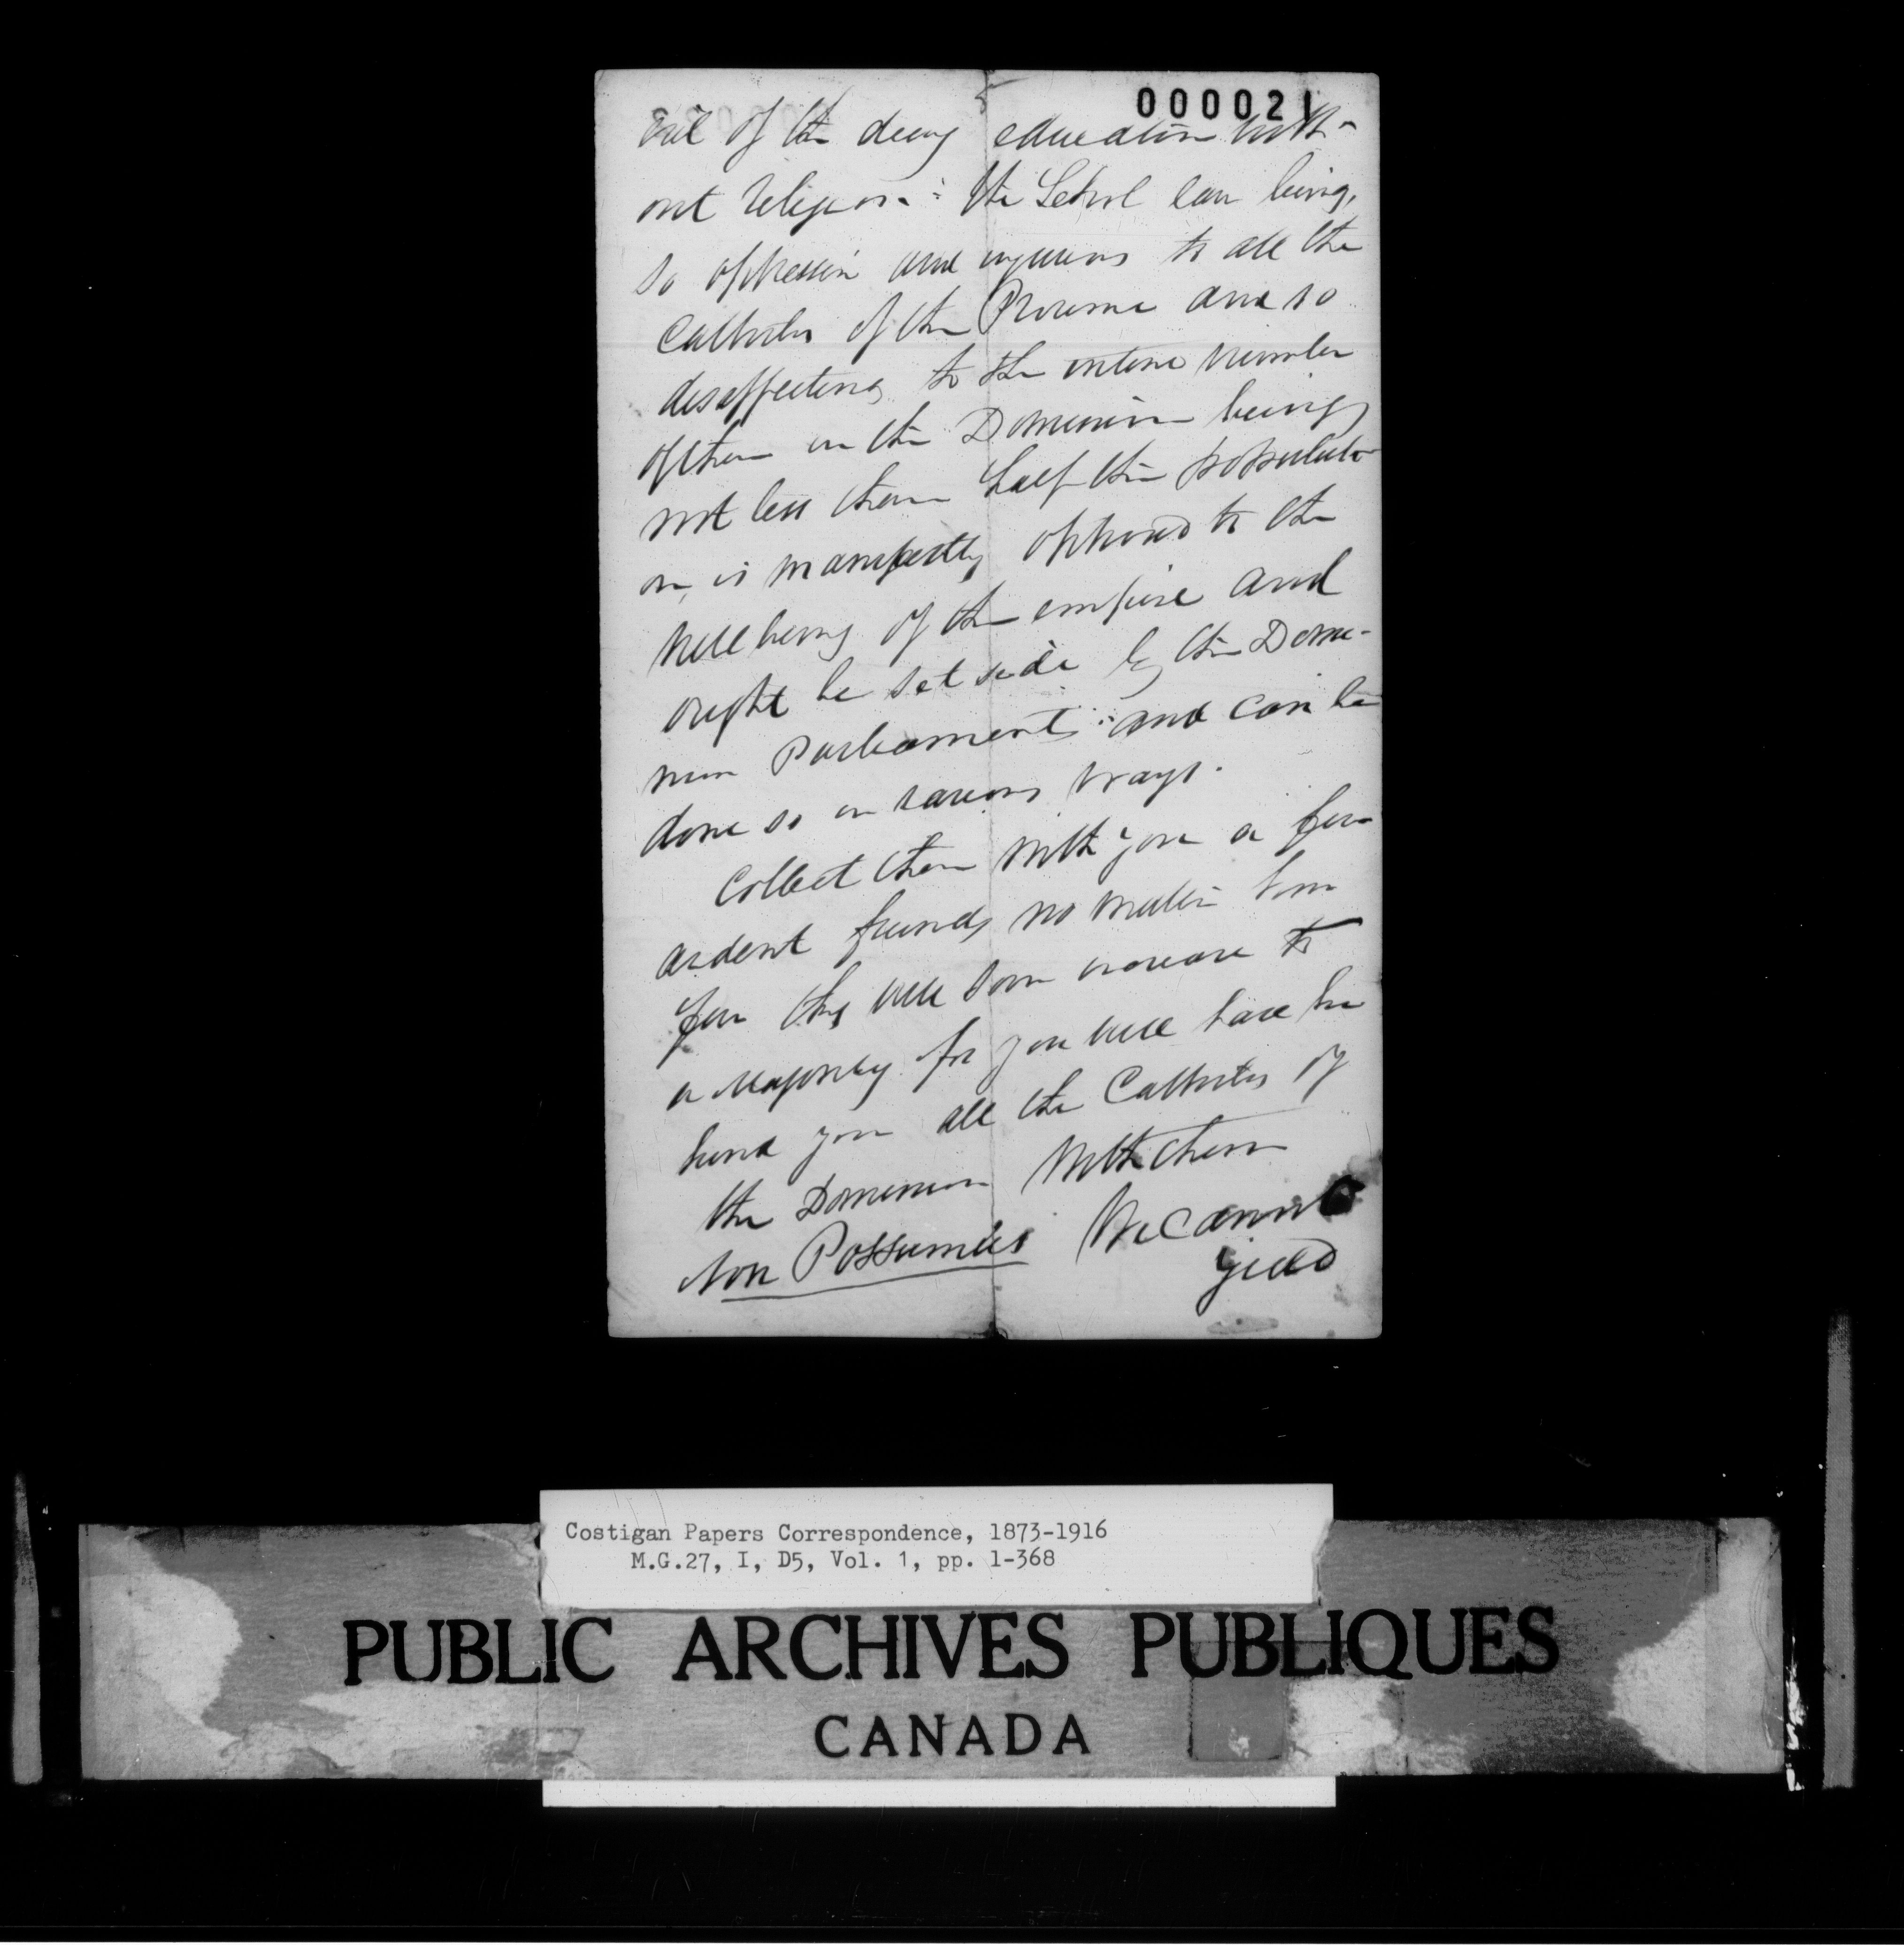 000021
evil of the day education with-
out religion: the School law being,
so oppressive and injurious to all the
Catholics of the Province and so
disaffecting to the entire number
of them in the Dominion being
not less than half the populati
on, is manifestly opposed to the
well being of the empire and
ought be set aside by the Domi-
nion Parliament: and can be
done so in various ways.
Collect then with you a few
ardent friends no matter how
few they will soon increase to
a majority for you will have be
hind you all the Catholics of
the Dominion with them
Non Possumus We cannot
yield
Costigan Papers Correspondence, 1873-1916
M.G.27, I, D5, Vol. 1, pp. 1-368
PUBLIC ARCHIVES PUBLIQUES
CANADA